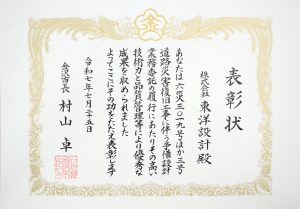 表彰状
株式会社 東洋設計 殿
あなたは六災又三〇一九号ほか三号
道路災害復旧工事に伴う予備設計
業務委託の履行にあたりその高い
技術力と品質管理等により優秀な
成果を収められました
よってここにその功をたたえ表彰します
令和七年七月二十五日
金沢市長 村山 卓